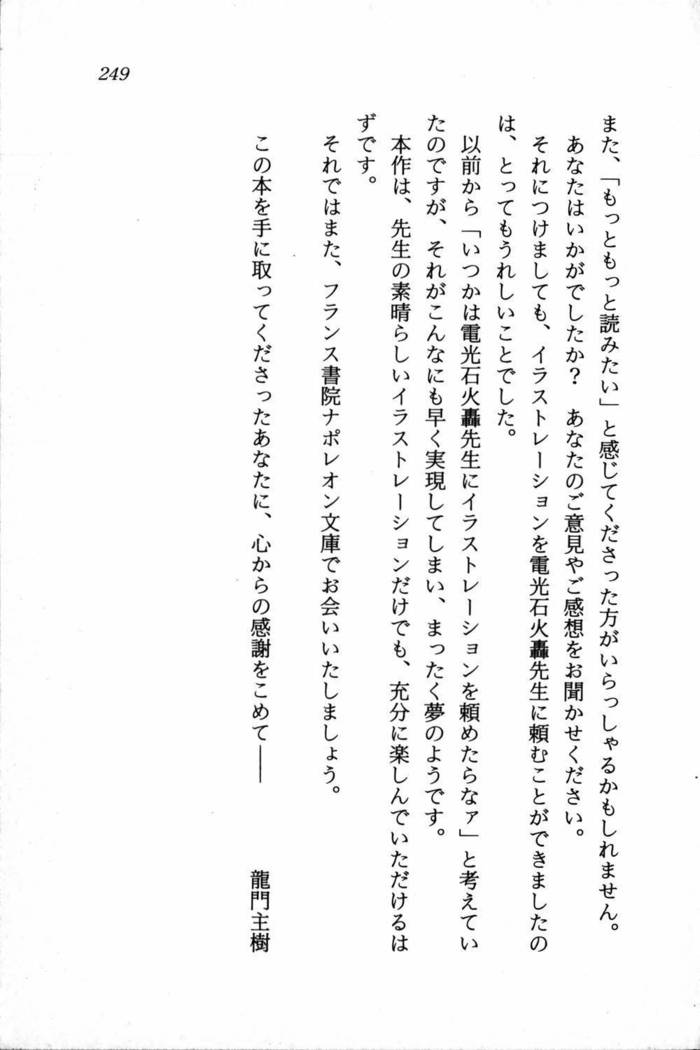 249
また、「もっともっと読みたい」と感じてくださった方がいらっしゃるかもしれません。
あなたはいかがでしたか？　あなたのご意見やご感想をお聞かせください。
それにつけましても、イラストレーションを電光石火轟先生に頼むことができましたの
は、とってもうれしいことでした。
以前から「いつかは電光石火轟先生にイラストレーションを頼めたらなァ」と考えてい
たのですが、それがこんなにも早く実現してしまい、まったく夢のようです。
本作は、先生の素晴らしいイラストレーションだけでも、充分に楽しんでいただけるは
ずです。
それではまた、フランス書院ナポレオン文庫でお会いいたしましょう。
この本を手に取ってくださったあなたに、心からの感謝をこめて――　　龍門主樹